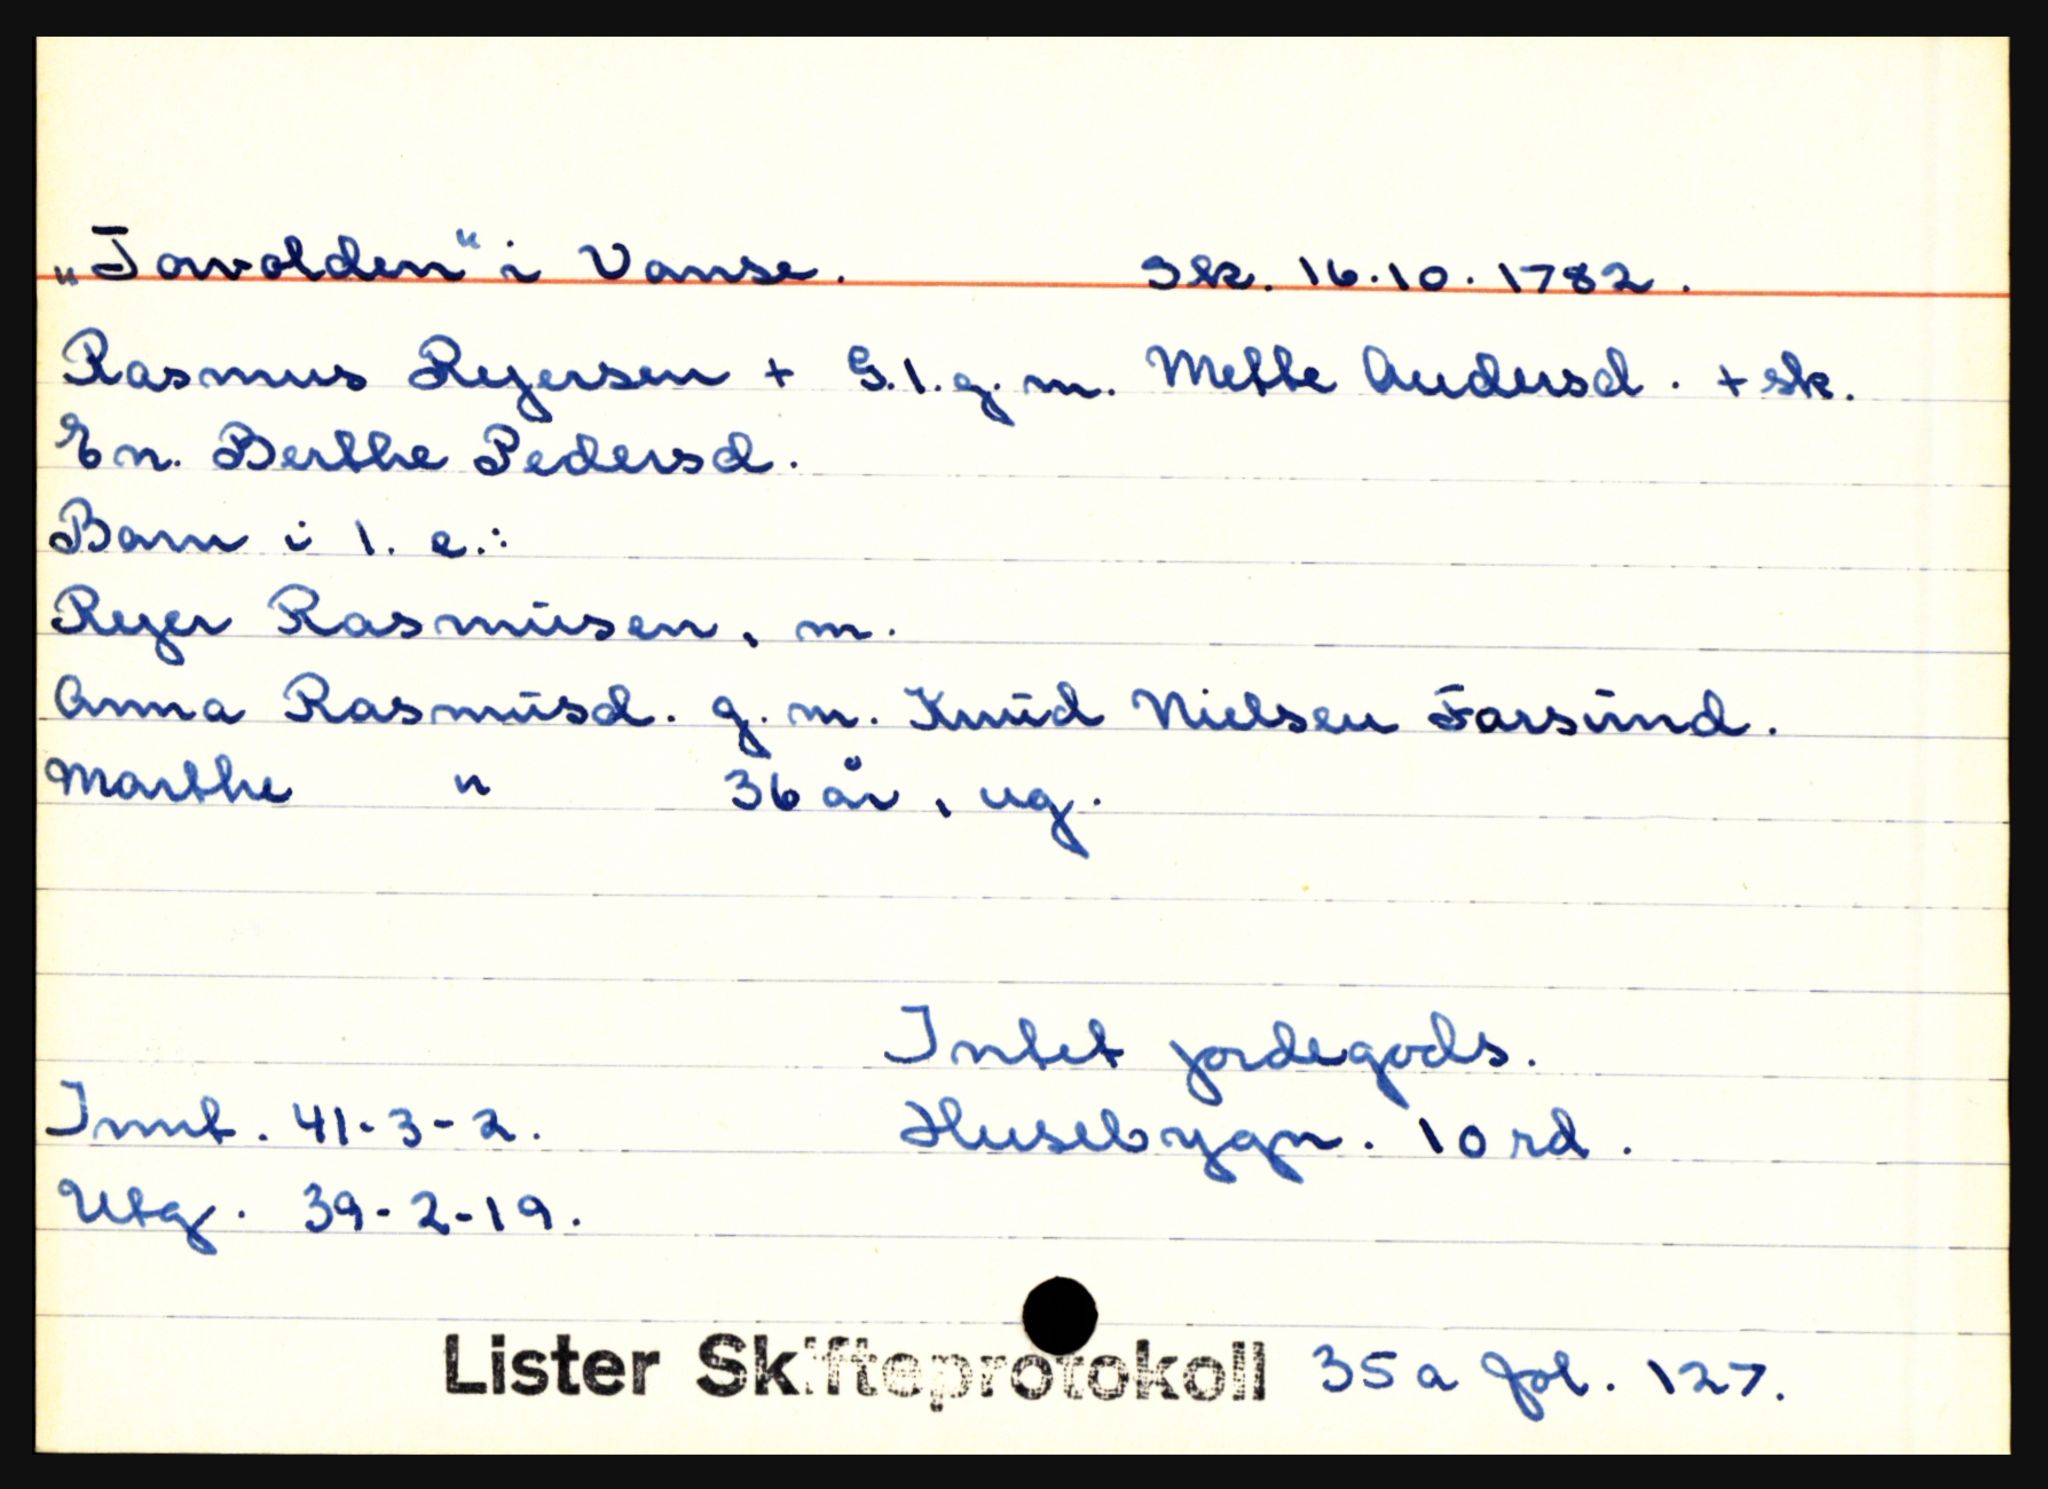 „Torvolden“ i Vanse. Sk. 16.10.1782.
Rasmus Reyersen + G.1.g.m. Mette Andersd. + sk.
En. Berthe Pedersd.
Barn i 1. e.:
Reyer Rasmusen, m.
Anna Rasmusd. g. m. Knud Nielsen Farsund.
Marthe " 36 år, ug.
Intet jordegods.
Innt. 41-3-2. Husebygn. 10 rd.
Utg. 39-2-19.
Lister Skifteprotokoll 35a fol. 127.